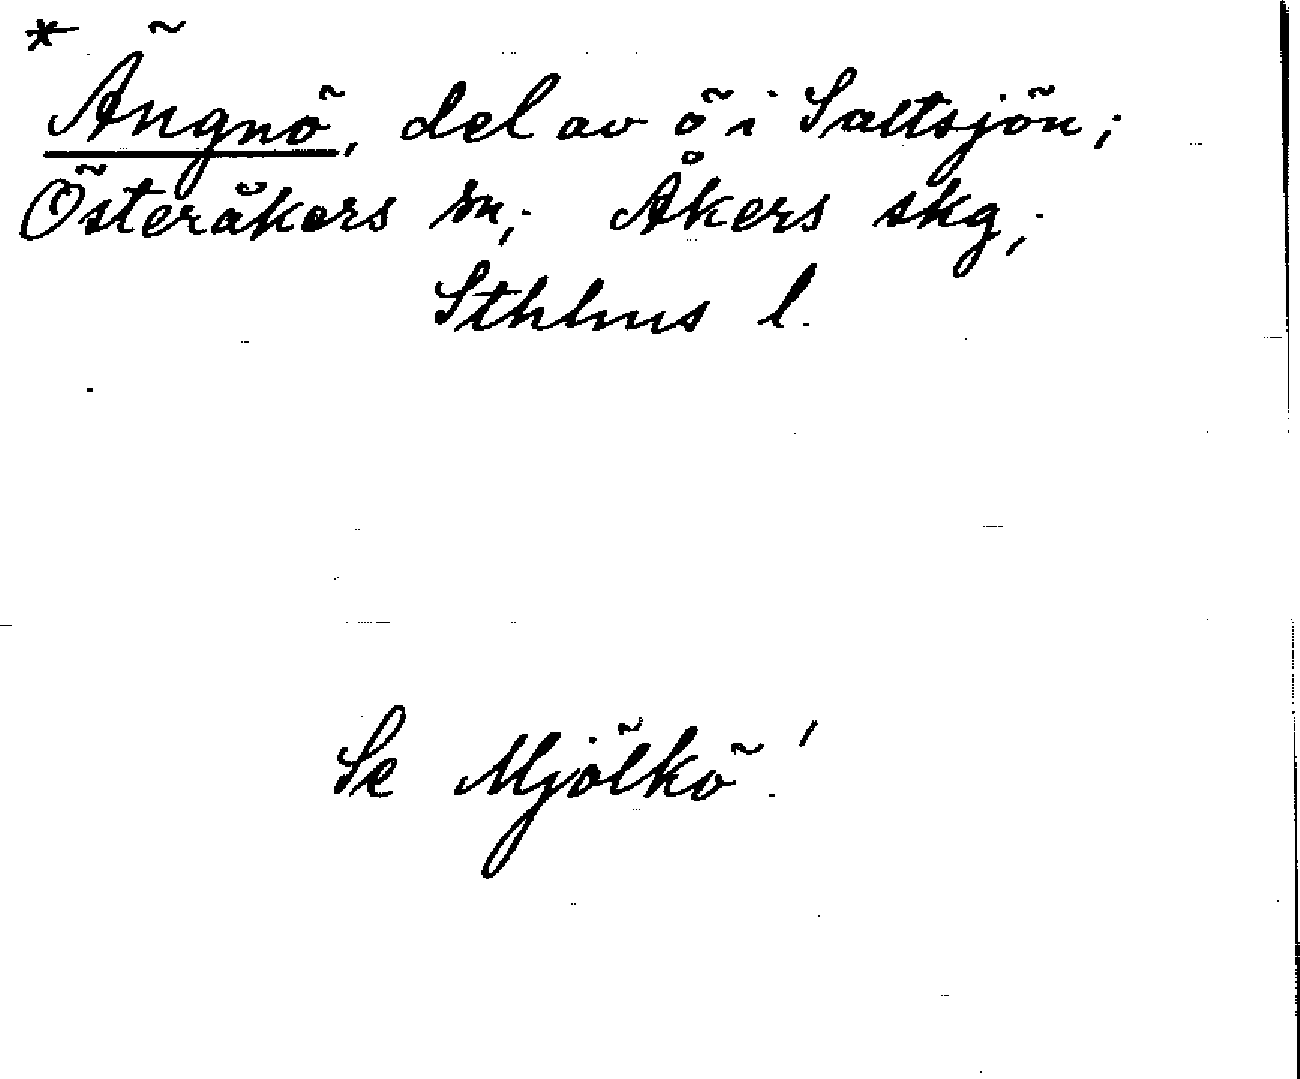 * Ängnö, del av ö i Saltsjön;
Österåkers sn; Åkers skg;
Sthlms l.
Se Mjölkö!